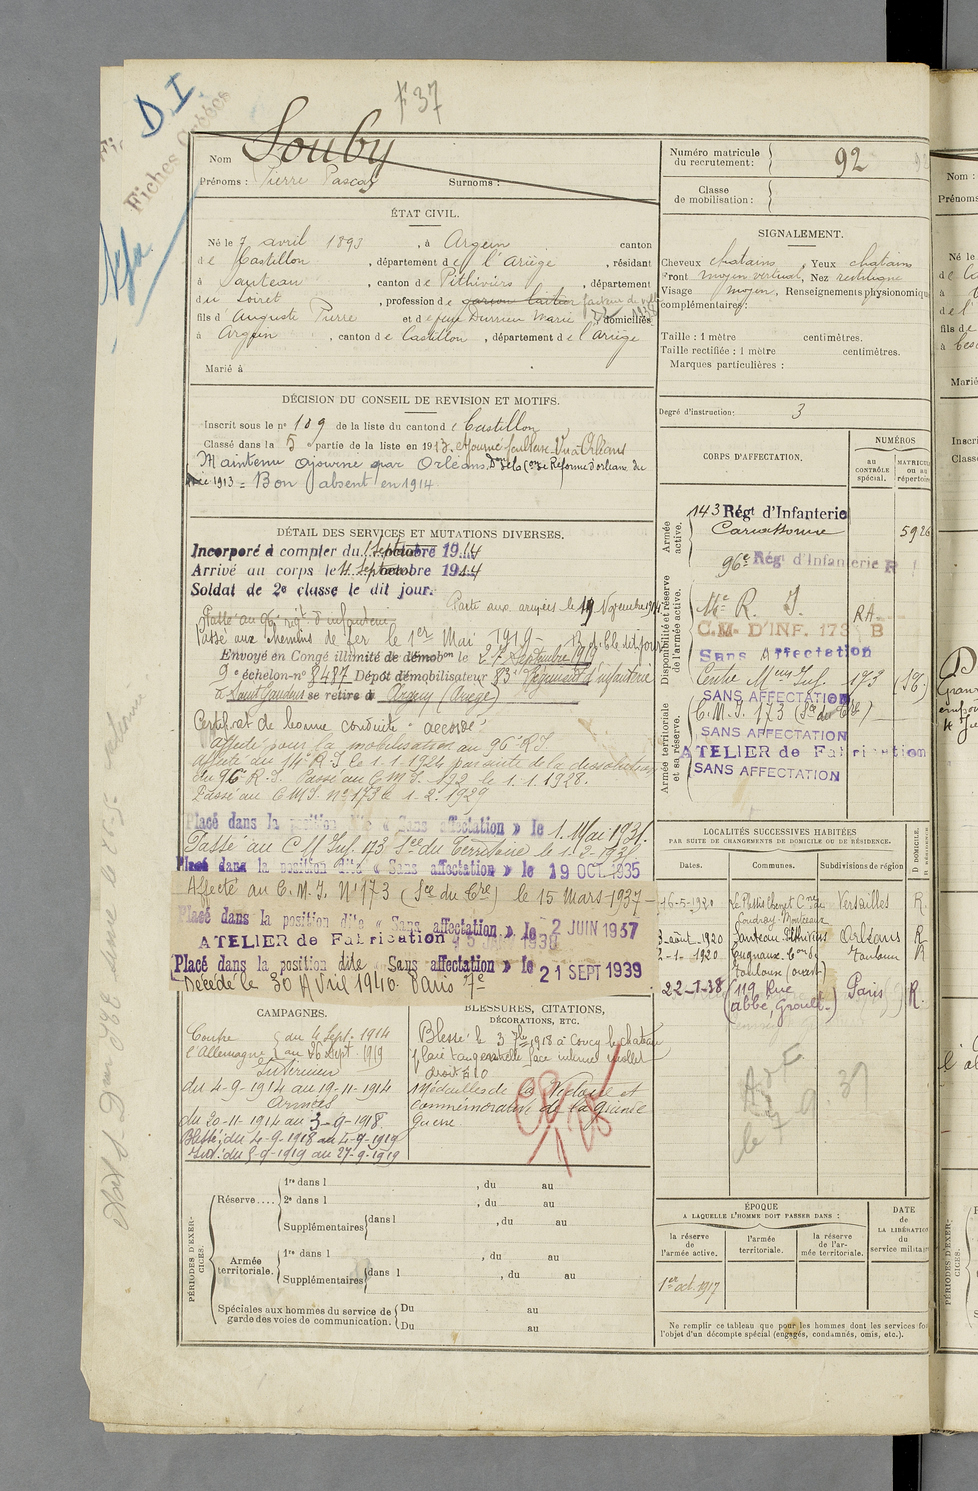 D I
Fiches Créées
F 37
Nom Souby
Prénoms : Pierre Pascal Surnoms :
Numéro matricule du recrutement : 92
Classe de mobilisation :
ÉTAT CIVIL.
Né le 7 avril 1893, à Argein canton
de Castillon, département de l'Ariège, résidant
à Santeau, canton de Pithiviers, département
du Loiret, profession de garçon laitier facteur de ville
1938
fils d'Auguste Pierre et de feue Durrieu Marie, domiciliés
à Argein, canton de Castillon, département de l'Ariège
Marié à
SIGNALEMENT.
Cheveux chatains, Yeux chatains
Front moyen vertical, Nez rectiligne
Visage moyen, Renseignements physionomiques
complémentaires :
Taille : 1 mètre centimètres.
Taille rectifiée : 1 mètre centimètres.
Marques particulières :
Degré d'instruction : 3
DÉCISION DU CONSEIL DE REVISION ET MOTIFS.
Inscrit sous le no 109 de la liste du canton de Castillon
Classé dans la 5e partie de la liste en 1913. Ajourné faiblesse. Vu à Orléans
Maintenu Ajourné par Orléans. Réforme d'Orléans du
1913 = Bon absent en 1914
DÉTAIL DES SERVICES ET MUTATIONS DIVERSES.
Incorporé à compter du 1 Septembre 1914
Arrivé au corps le 4 Septembre 1914
Soldat de 2e classe le dit jour.
Parti aux armées le 19 Novembre 1914
Passé au 96e régt d'infanterie
Passé aux chemins de fer le 1er Mai 1919 - R. d. l. le dit jour
Envoyé en Congé illimité de démobon le 27 Septembre 1919
9e échelon no 8487 Dépôt démobilisateur 83e Régiment d'infanterie
à Saint Gaudens se retire à Argein (Ariège)
Certificat de bonne conduite "accordé"
Affecté pour la mobilisation au 96e R.I.
Affecté du 14e R.I. le 1-1-1924 par suite de la dissolution
du 96e R.I. Passé au C.M.I. 172 le 1.1.1928.
Passé au CMI No 173 le 1-2-1929
Placé dans la position dite « Sans affectation » le 1. Mai 1931.
Passé au C M Inf. 173 Son du Territoire le 1-2-193
Placé dans la position dite « Sans affectation » le 19 OCT. 1935
Affecté au C.M.I. No 173 (Son du Cre) le 15 Mars 1937 -
Placé dans la position dite « Sans affectation » le 2 JUIN 1937
ATELIER de Fabrication 15 JANV 1938
Placé dans la position dite Sans affectation » le 21 SEPT 1939
Décédé le 30 Avril 1940. Paris 7e
CORPS D'AFFECTATION.
NUMÉROS
au CONTRÔLE spécial.
MATRICULE ou au répertoire
Armée active.
143 Régt d'Infanterie
Carcassonne 5926
96e Régt d'Infanterie R
Disponibilité et réserve de l'armée active.
14e R. I. RA.
C.M. D'INF. 173 B
Sans Affectation
Centre Men Inf. 173
SANS AFFECTATION
Armée territoriale et sa réserve.
C.M.I. 173 (Son du Cre)
SANS AFFECTATION
ATELIER de Fabrication
SANS AFFECTATION
LOCALITÉS SUCCESSIVES HABITÉES
PAR SUITE DE CHANGEMENTS DE DOMICILE OU DE RÉSIDENCE.
Dates. Communes. Subdivisions de région
D. DOMICILE. R. RÉSIDENCE
16-5-1920 Le Plessis Chenet Cne de Coudray Montceaux Versailles R.
3-août-1920 Santeau Pithiviers Orléans R
2-1-1920 Cugnaux. Con de Toulouse (ouest) Toulouse R
22-1-38 (119 Rue abbé Groult) Paris R.
CAMPAGNES.
Contre l'Allemagne du 4 Sept. 1914 au 26 Sept. 1919
Intérieur
du 4-9-1914 au 19-11-1914
Armées
du 20-11-1914 au 3-9-1918.
Blessé : du 4-9-1918 au 4-9-1919
Int. : du 5-9-1919 au 27-9-1919
BLESSURES, CITATIONS,
DÉCORATIONS, ETC.
Blessé le 3 7bre 1918 à Coucy le chateau
face interne mollet
droit E.O
Médailles de la Victoire et
Commémorative de la grande
guerre
PÉRIODES D'EXERCICES.
Réserve....
1re dans l , du au
2e dans l , du au
Supplémentaires dans l , du au
Armée territoriale.
1re dans l , du au
Supplémentaires dans l , du au
Spéciales aux hommes du service de garde des voies de communication.
Du au
Du au
ÉPOQUE
A LAQUELLE L'HOMME DOIT PASSER DANS :
la réserve de l'armée active.
l'armée territoriale.
la réserve de l'armée territoriale.
DATE de LA LIBÉRATION du service militaire
1er oct. 1917
Ne remplir ce tableau que pour les hommes dont les services font
l'objet d'un décompte spécial (engagés, condamnés, omis, etc.).